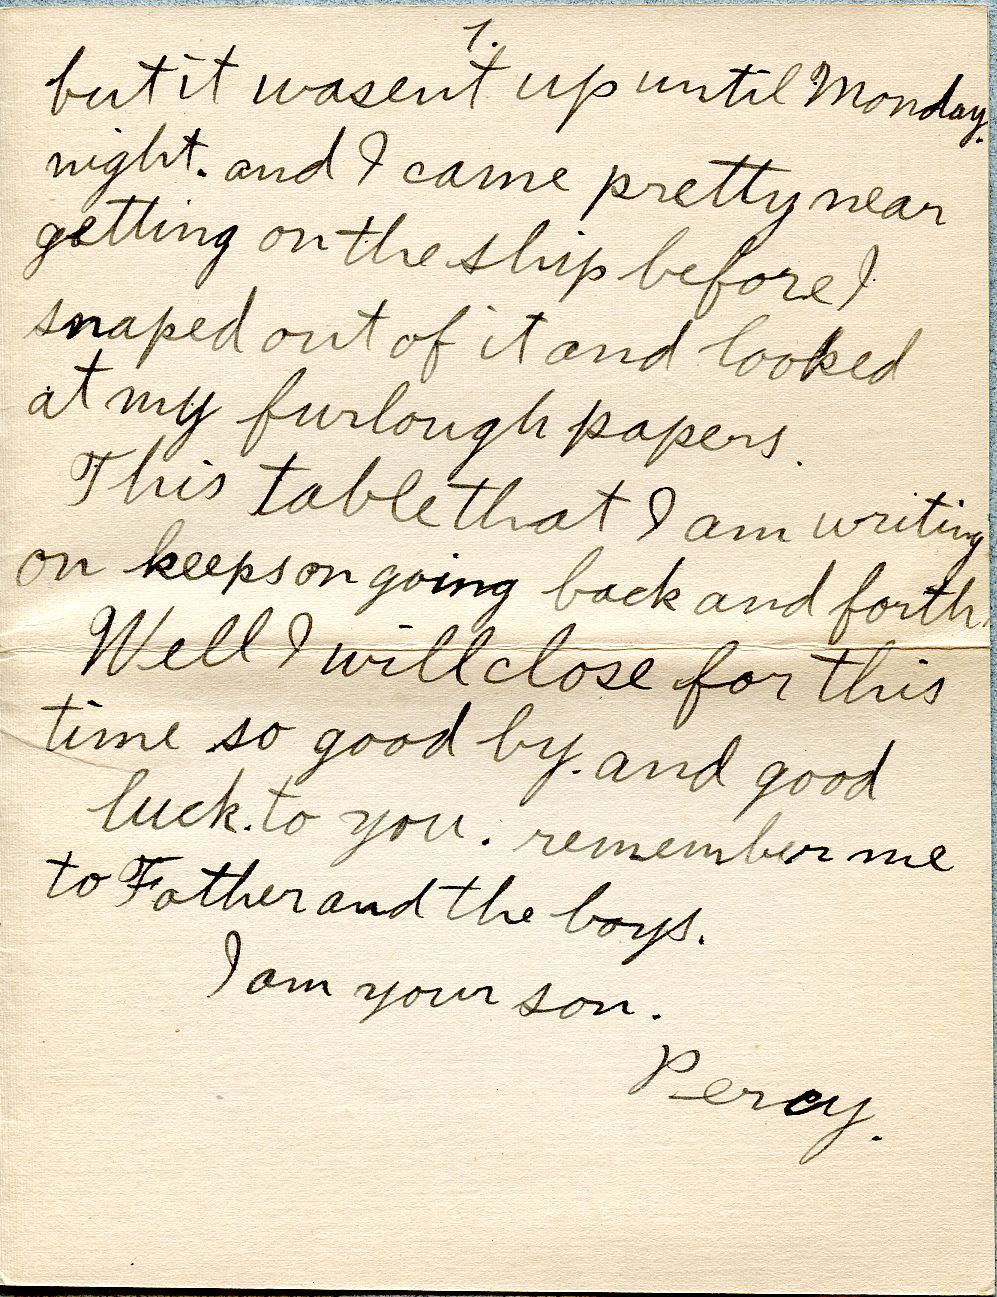 7.
but it wasent up until Monday.
night. and I came pretty near
getting on the ship before I
snaped out of it and looked
at my furlough papers.
This table that I am writing
on keeps on going back and forth.
Well I will close for this
time so good by. and good
luck. to you. remember me
to Father and the boys.
I am your son.
Percy.